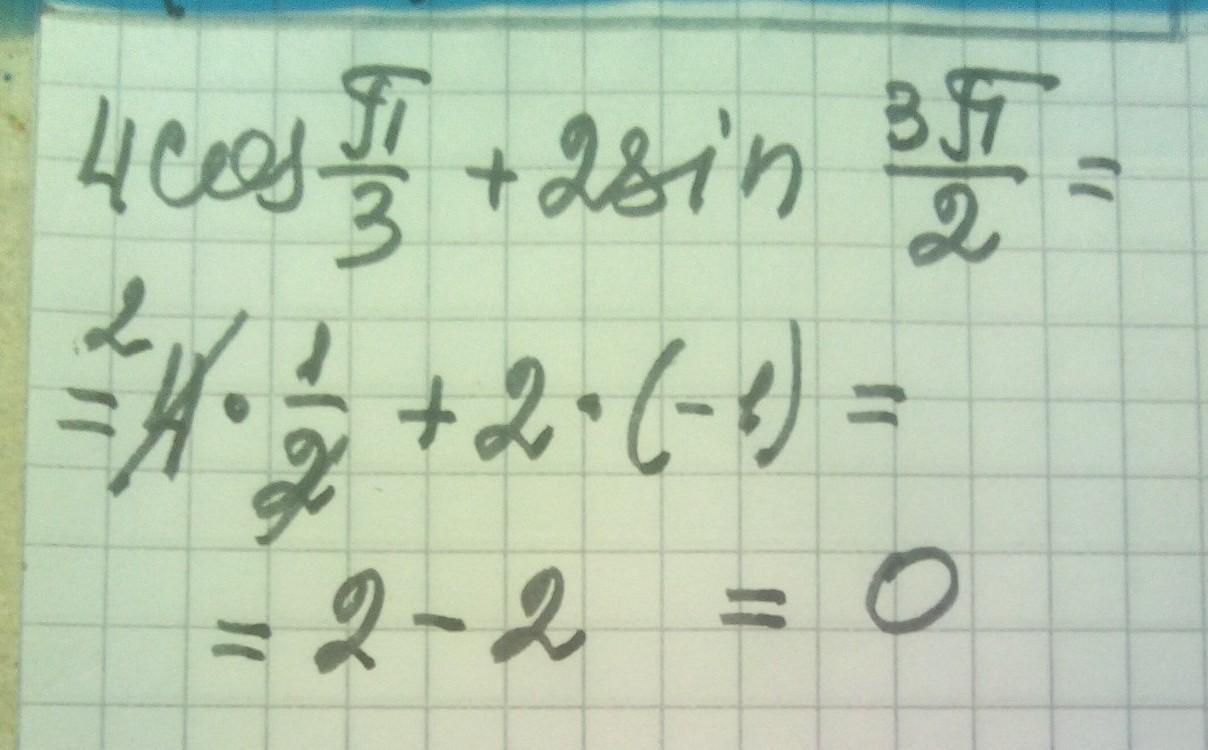 4cos π/3 + 2sin 3π/2 =
= 4̸² · 1/2̸ + 2 · (-1) =
= 2 - 2 = 0